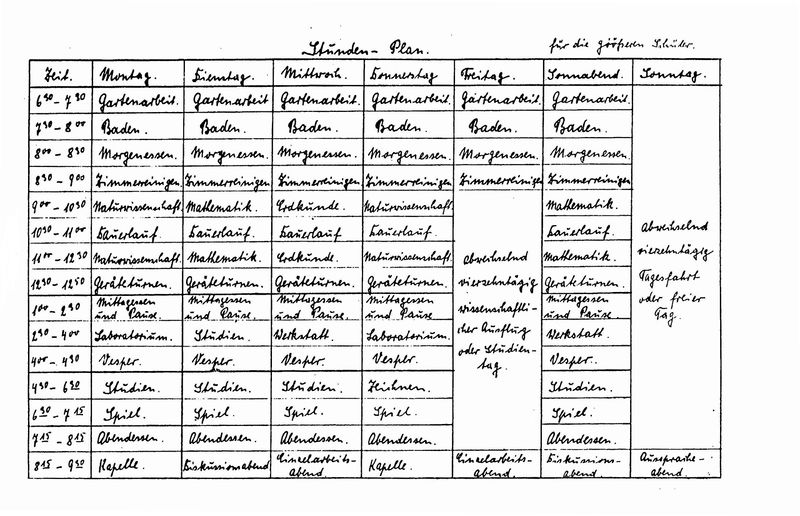 Stunden-Plan. für die größeren Schüler.
Zeit. Montag. Dienstag. Mittwoch. Donnerstag Freitag. Sonnabend. Sonntag.
6³⁰ - 7³⁰ Gartenarbeit. Gartenarbeit Gartenarbeit. Gartenarbeit. Gartenarbeit. Gartenarbeit.
7³⁰ - 8⁰⁰ Baden. Baden. Baden. Baden. Baden. Baden.
8⁰⁰ - 8³⁰ Morgenessen. Morgenessen. Morgenessen. Morgenessen. Morgenessen. Morgenessen.
8³⁰ - 9⁰⁰ Zimmerreinigen. Zimmerreinigen. Zimmerreinigen. Zimmerreinigen. Zimmerreinigen Zimmerreinigen
9⁰⁰ - 10³⁰ Naturwissenschaft. Mathematik. Erdkunde. Naturwissenschaft. Mathematik.
10³⁰ - 11⁰⁰ Dauerlauf. Dauerlauf. Dauerlauf Dauerlauf. Dauerlauf.
11⁰⁰ - 12³⁰ Naturwissenschaft. Mathematik. Erdkunde. Naturwissenschaft. Mathematik.
12³⁰ - 12⁵⁰ Geräteturnen. Geräteturnen. Geräteturnen. Geräteturnen. Geräteturnen.
1⁰⁰ - 2³⁰ Mittagessen und Pause. Mittagessen und Pause. Mittagessen und Pause. Mittagessen und Pause. Mittagessen und Pause.
2³⁰ - 4⁰⁰ Laboratorium. Studien. Werkstatt. Laboratorium. Werkstatt.
4⁰⁰ - 4³⁰ Vesper. Vesper. Vesper. Vesper. Vesper.
4³⁰ - 6³⁰ Studien. Studien. Studien. Zeichnen. Studien.
6³⁰ - 7¹⁵ Spiel. Spiel. Spiel. Spiel. Spiel.
7¹⁵ - 8¹⁵ Abendessen. Abendessen. Abendessen. Abendessen. Abendessen.
abwechselnd
vierzehntägig
wissenschaftli-
cher Ausflug
oder Studien-
tag.
Abwechselnd
vierzehntägig
Tagesfahrt
oder freier
Tag.
8¹⁵ - 9³⁰ Kapelle. Diskussionsabend Einzelarbeits-abend Kapelle. Einzelarbeits-abend. Diskussions-abend. Aussprache-abend.